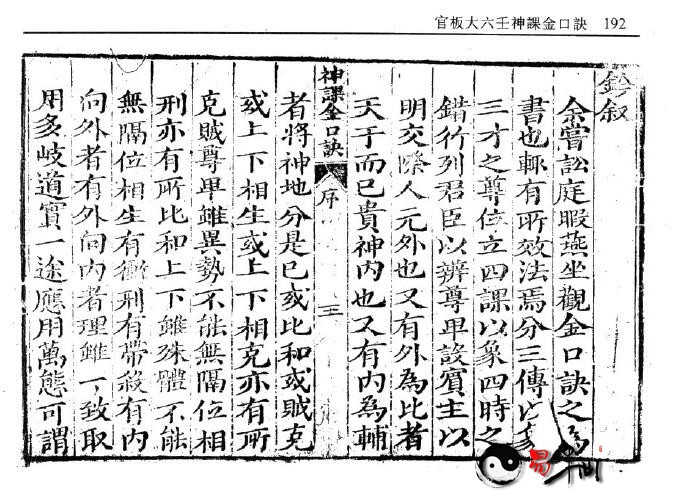 官板大六壬神課金口訣 192
叙
余嘗訟庭暇燕坐觀金口訣之為
書也輒有所效法焉分三傳以象
三才之尊位立四課以象四時之
錯行列君臣以辨尊卑設賓主以
明交際人元外也又有外為比者
天干而已貴神內也又有內為輔
神課金口訣 序 三
者將神地分是已或比和或賊克
或上下相生或上下相克亦有所
克賊尊卑雖異勢不能無隔位相
刑亦有所比和上下雖殊體不能
無隔位相生有衝刑有帶殺有內
向外者有外向內者理雖一致取
用多岐道實一途應用萬態可謂
易